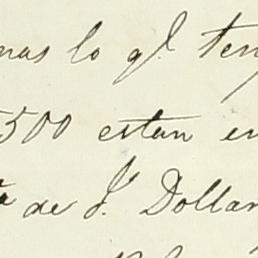 mas lo ql. ten
500 estan en
de J. Dollar